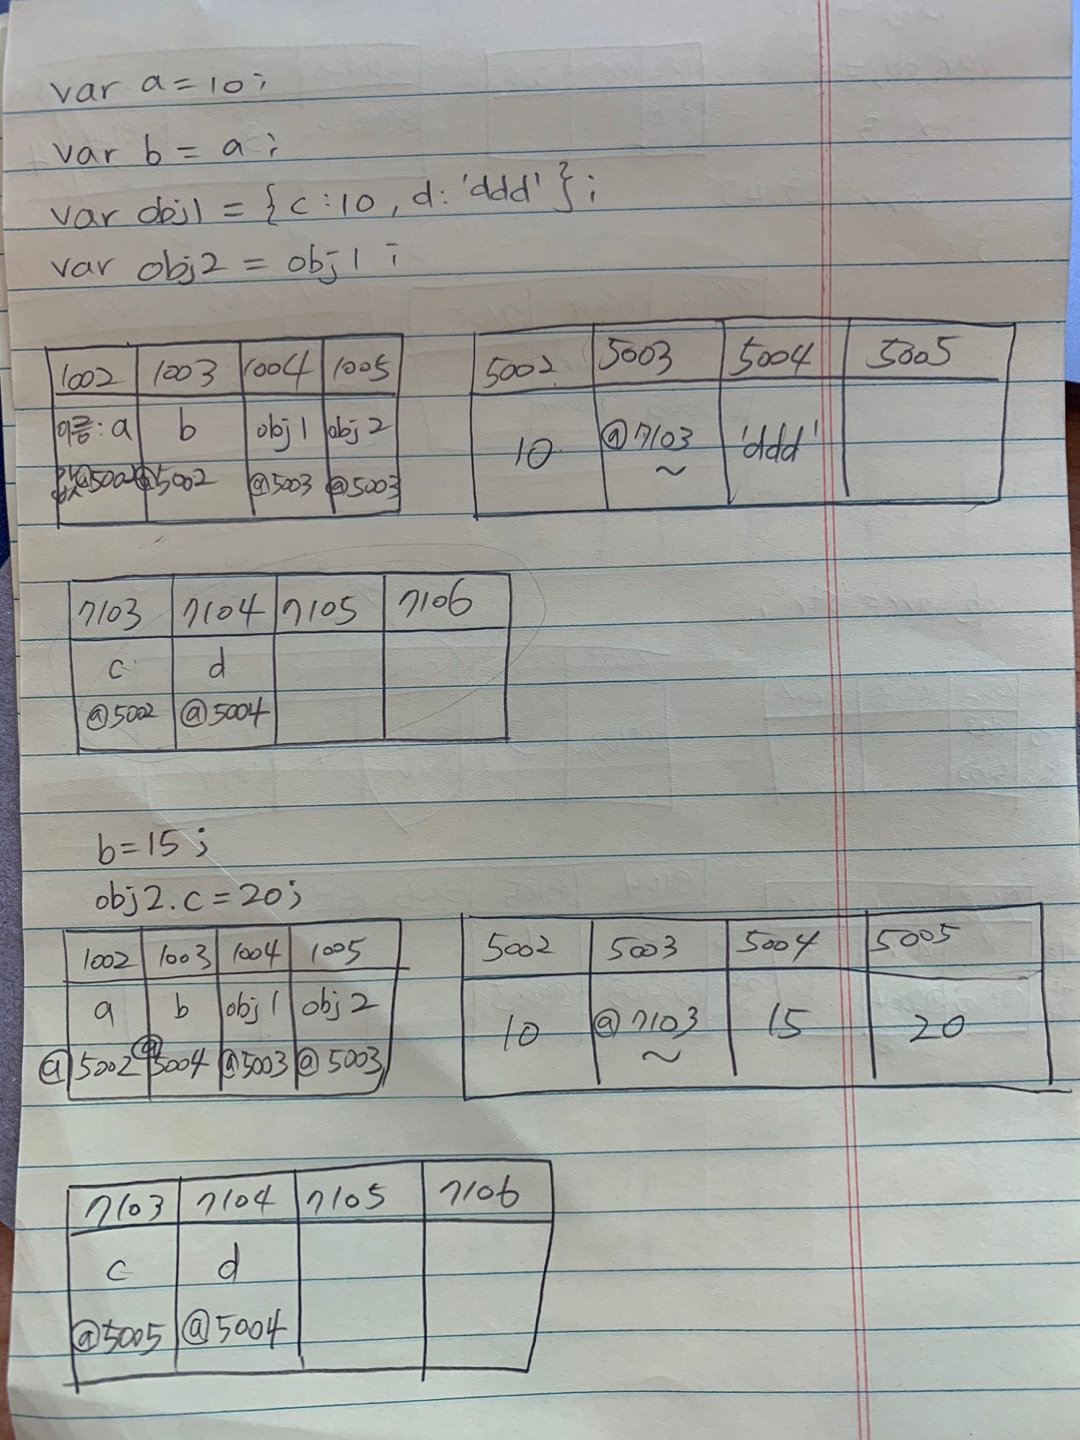 var a = 10;
var b = a;
var obj1 = { c : 10, d : 'ddd' };
var obj2 = obj1;
1002 1003 1004 1005
이름: a b obj1 obj2
값 @5002 @5002 @5003 @5003
5002 5003 5004 5005
10 @7103 ~ 'ddd'
7103 7104 7105 7106
c d
@5002 @5004
b = 15;
obj2.c = 20;
1002 1003 1004 1005
a b obj1 obj2
@5002 @5004 @5003 @5003
5002 5003 5004 5005
10 @7103 ~ 15 20
7103 7104 7105 7106
c d
@5005 @5004